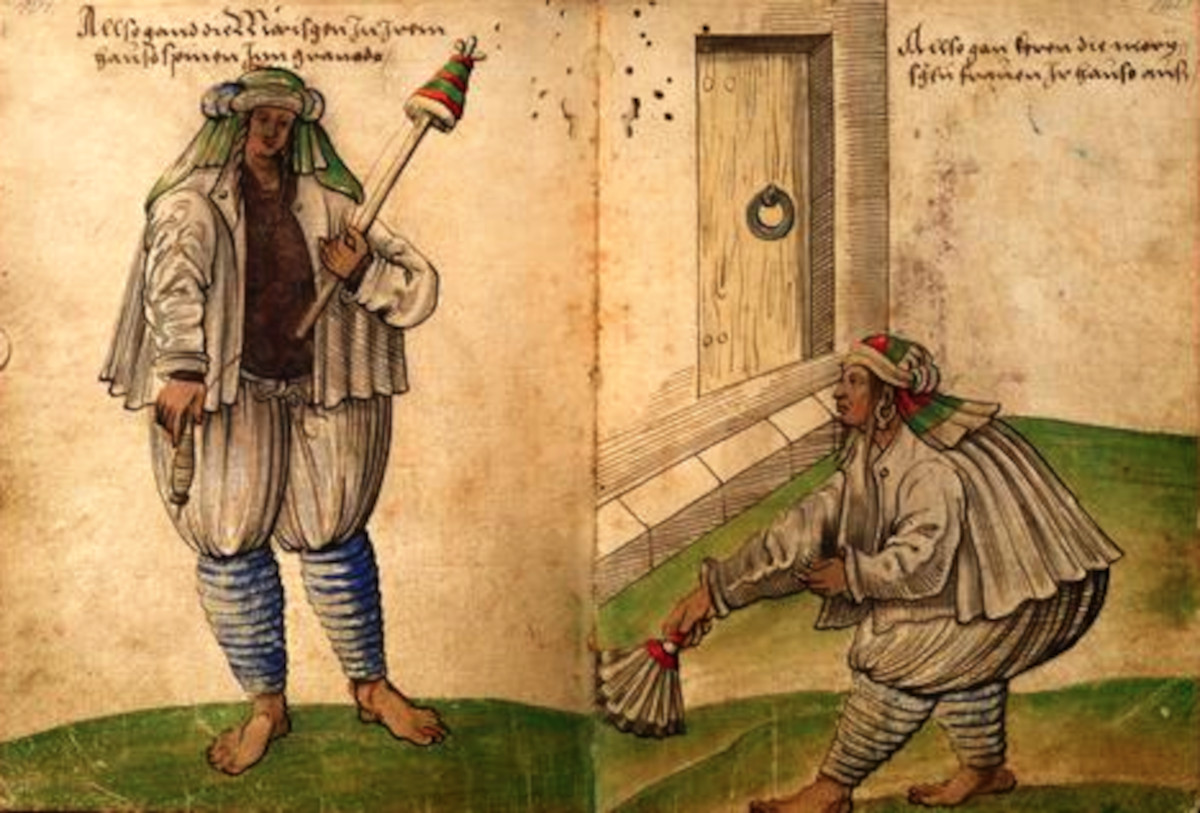 Allso gand die Mörisgen In Irem
hauss spinen Inn granada
Allso gan keren die mory
schen frauen Ir hauss auss